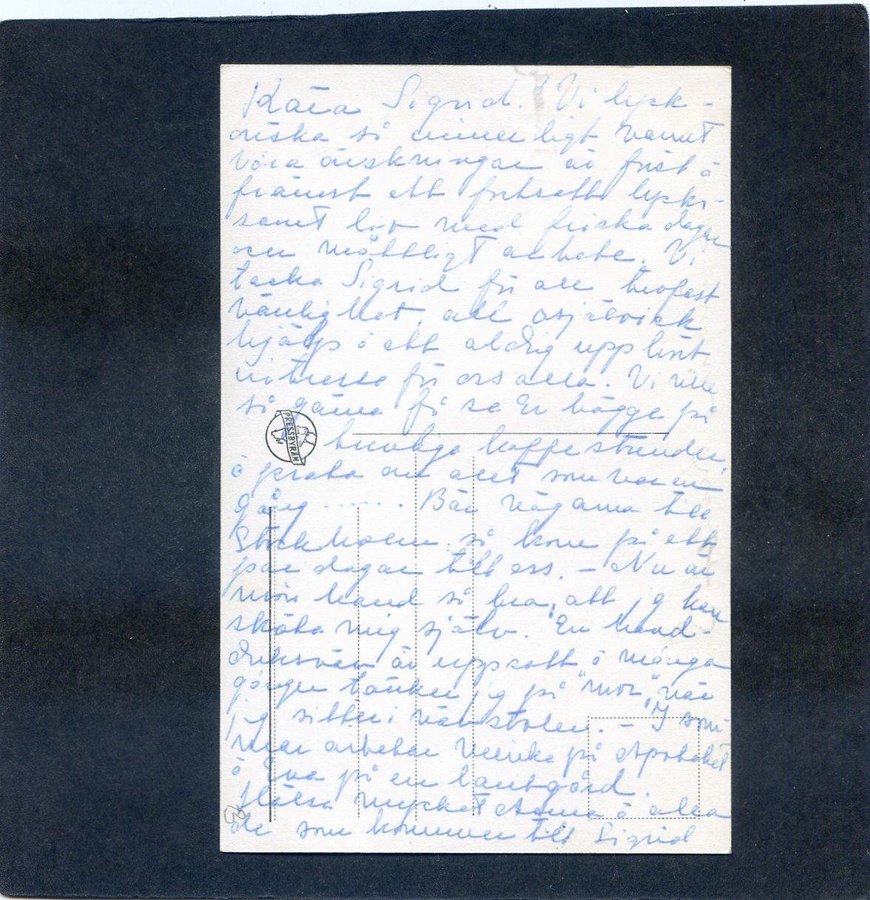 Kära Sigrid. Vi lyck-
önska så innerligt varmt
våra önskningar är först å
främst ett fortsatt lyck-
samt liv med friska dagar
och måttligt arbete. Vi
tacka Sigrid för all trofast
vänlighet, all osjälvisk
hjälp å ett aldrig upphört
intresse för oss alla. Vi vill
så gärna få se Er bägge på
PRESSBYRÅN
kaffestunder
å prata om allt som var en
gång ...... Bär vägarna till
Stockholm så kom på ett
par dagar till oss. – Nu är
min hand så bra, att jg kan
sköta mig själv. En hand-
duksväv är uppsatt å många
gånger tänker jg på "mor", när
jg sitter i vävstolen. – I som-
mar arbetar på Apoteket
å Eva på en lantgård.
Hälsa mycket Anna å alla
de som kommer till Sigrid